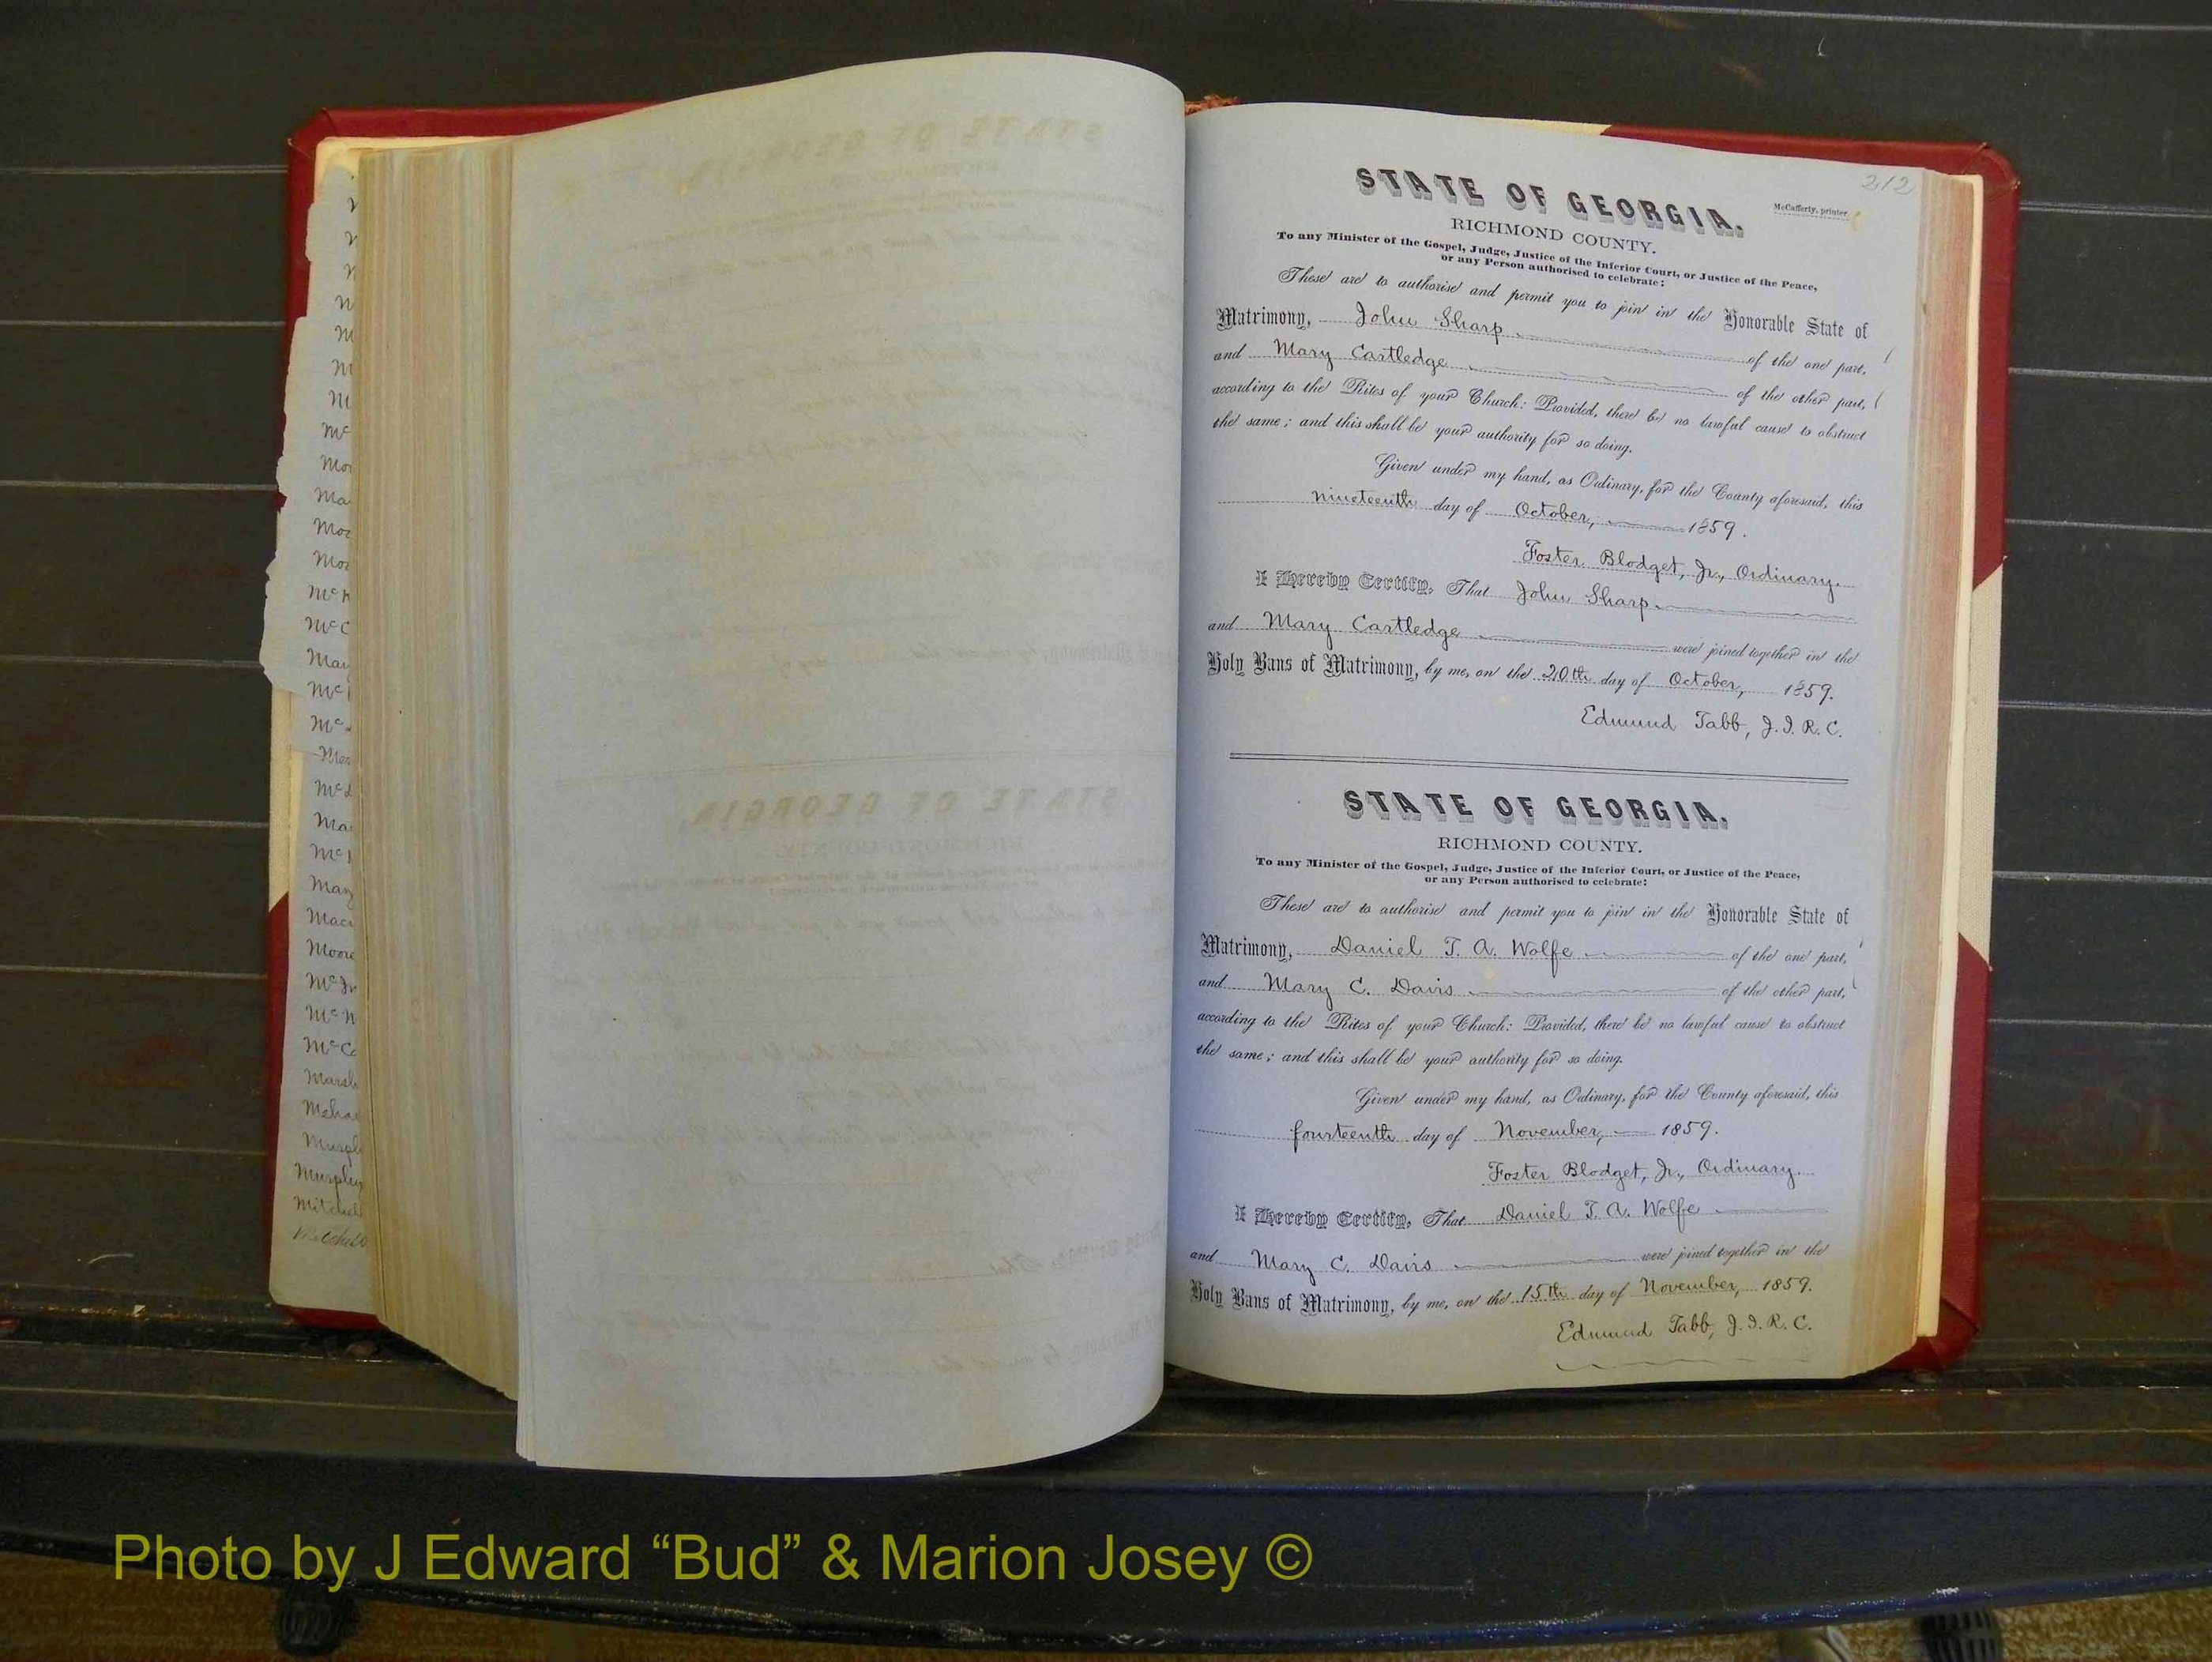 Mc
Mor
Ma
Moo
Moo
McK
McC
May
Mc
Mc
Mea
Mcd
Ma
Mc
May
Mac
Moore
McN
McCa
Marsh
Meha
Murph
Murphey
Mitchell
Mitchell
212
STATE OF GEORGIA.
McCafferty, printer.
RICHMOND COUNTY.
To any Minister of the Gospel, Judge, Justice of the Inferior Court, or Justice of the Peace,
or any Person authorised to celebrate:
These are to authorise and permit you to join in the Honorable State of
Matrimony, John Sharp of the one part,
and Mary Cartledge of the other part,
according to the Rites of your Church: Provided, there be no lawful cause to obstruct
the same; and this shall be your authority for so doing.
Given under my hand, as Ordinary, for the County aforesaid, this
nineteenth day of October, 1859.
Foster Blodget, Jr., Ordinary.
I Hereby Certify, That John Sharp.
and Mary Cartledge were joined together in the
Holy Bans of Matrimony, by me, on the 20th day of October, 1859.
Edmund Tabb, J. I. R. C.
STATE OF GEORGIA.
RICHMOND COUNTY.
To any Minister of the Gospel, Judge, Justice of the Inferior Court, or Justice of the Peace,
or any Person authorised to celebrate:
These are to authorise and permit you to join in the Honorable State of
Matrimony, Daniel T. A. Wolfe of the one part,
and Mary C. Davis of the other part,
according to the Rites of your Church: Provided, there be no lawful cause to obstruct
the same; and this shall be your authority for so doing.
Given under my hand, as Ordinary, for the County aforesaid, this
fourteenth day of November, 1859.
Foster Blodget, Jr., Ordinary.
I Hereby Certify, That Daniel T. A. Wolfe
and Mary C. Davis were joined together in the
Holy Bans of Matrimony, by me, on the 15th day of November, 1859.
Edmund Tabb, J. I. R. C.
Photo by J Edward “Bud” & Marion Josey ©